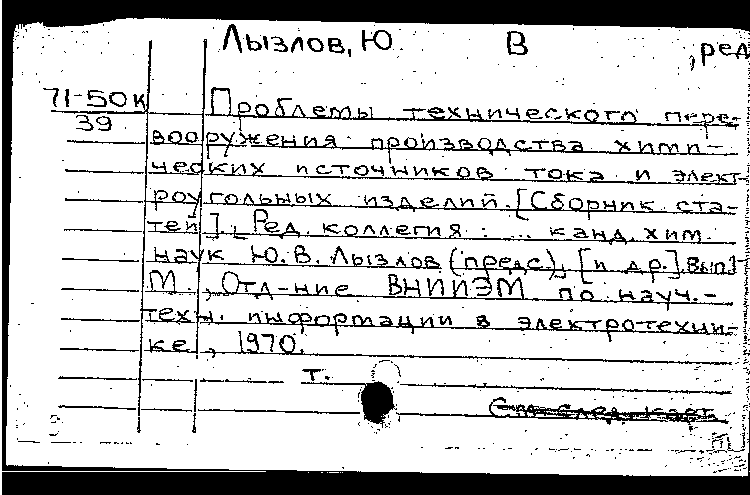 Лызлов, Ю. В , ред
71-50к
39
Проблемы технического пере-
вооружения производства хими-
ческих источников тока и элект-
роугольных изделий. [Сборник ста-
тей]. Ред. коллегия: ... канд. хим.
наук Ю. В. Лызлов (предс), [и др.] Вып.1
М., Отд-ние ВНИИЭМ по науч.-
техн. информации в электротехни-
ке, 1970.
т.
См. след. карт.